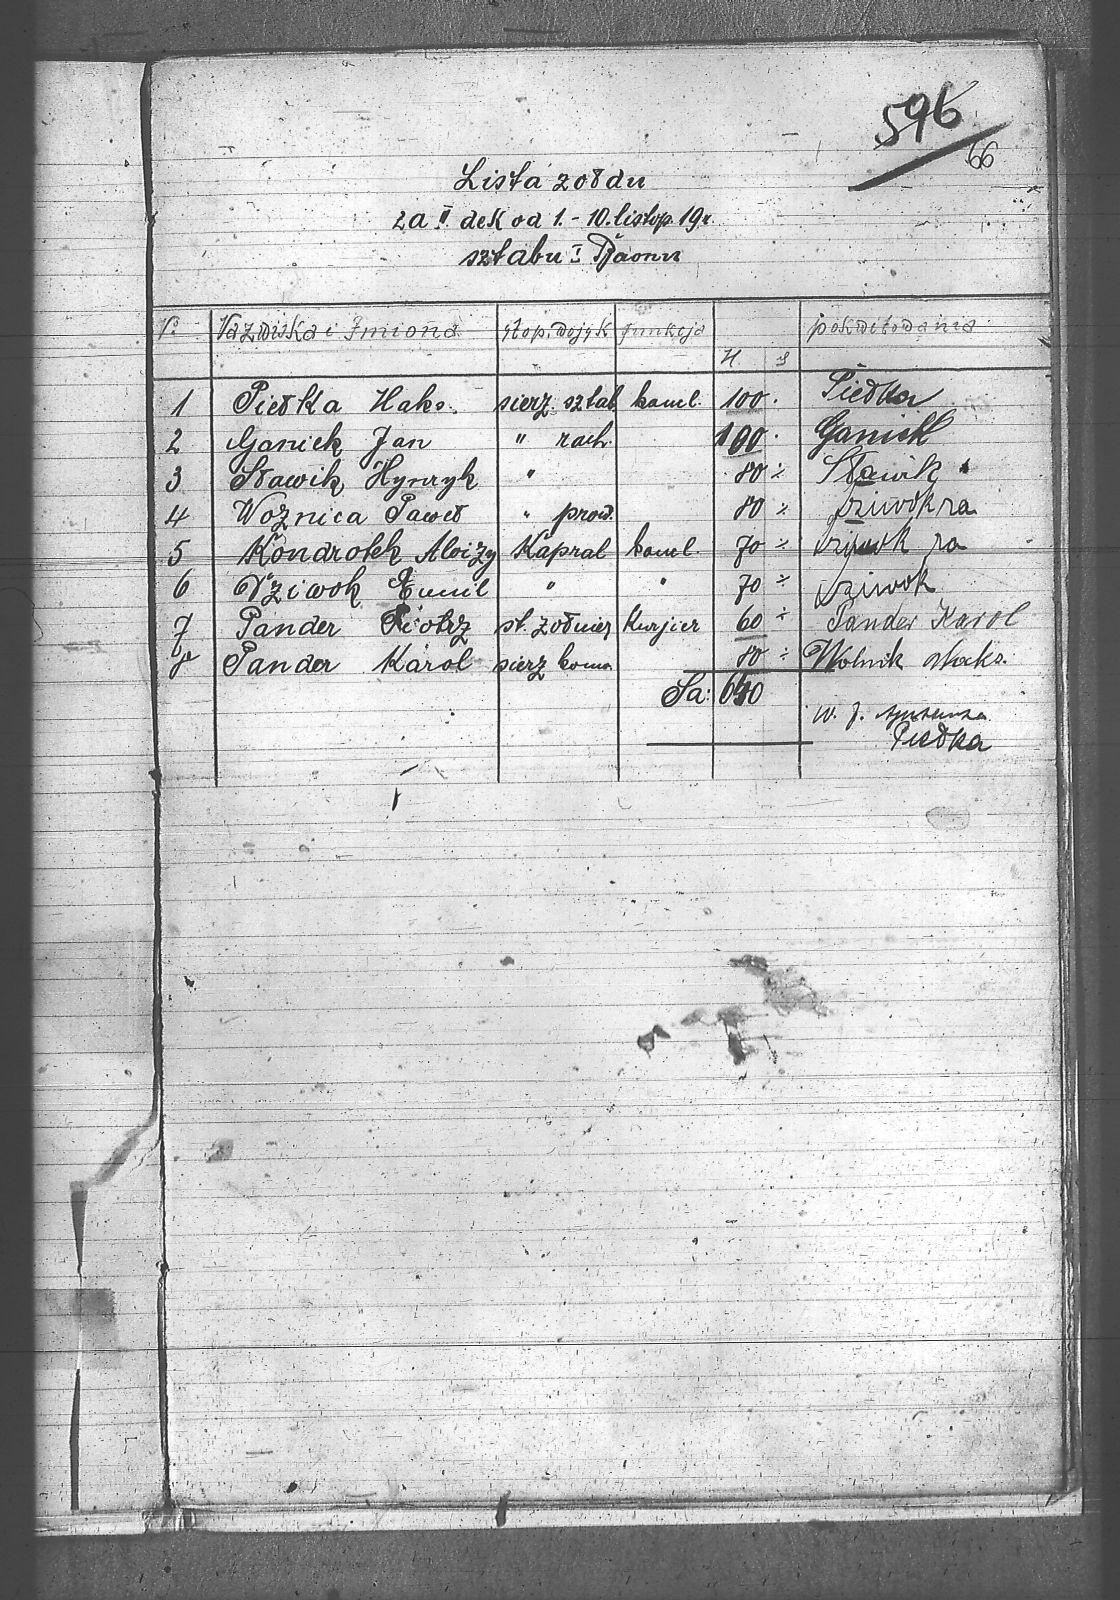 596
66
Lista zołdu
za II dek od 1.-10. listop 19r.
sztabu I Rjaonu
No Nazwiska i Imiona stop. wojsk funkcja M S pokwitowania
1 Piełka Maks. sierz. sztab kancl. 100. Piełka
2 Ganiek Jan " rach. 100. Ganiek
3 Sławik Hynryk " 80 ÷ Sławik
4 Woznica Paweł " prow. 80 ÷ Dziwok za
5 Kondrotek Aloizy Kapral kancl. 70 ÷ Dziwok za
6 Dziwok Emil " " 70 ÷ Dziwok
7 Pander Piotrz st. zołnierz Kurjier 60 ÷ Pander Karol
8 Pander Karol sierz 80 ÷ Wolnik Maks.
Sa: 640
w. z.
Piełka